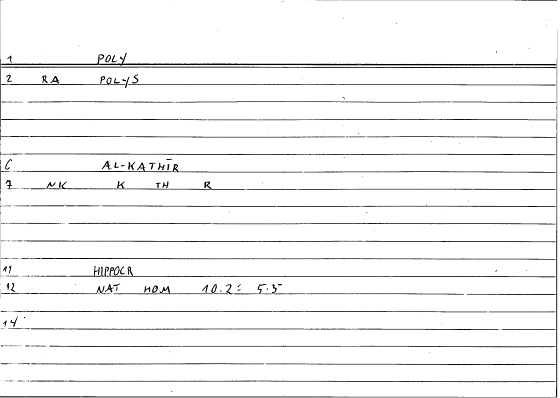 1 POLY
2 RA POLYS
6 AL-KATHĪR
7 NK K TH R
11 HIPPOCR
12 NAT HOM 10.2 = 5.5
14